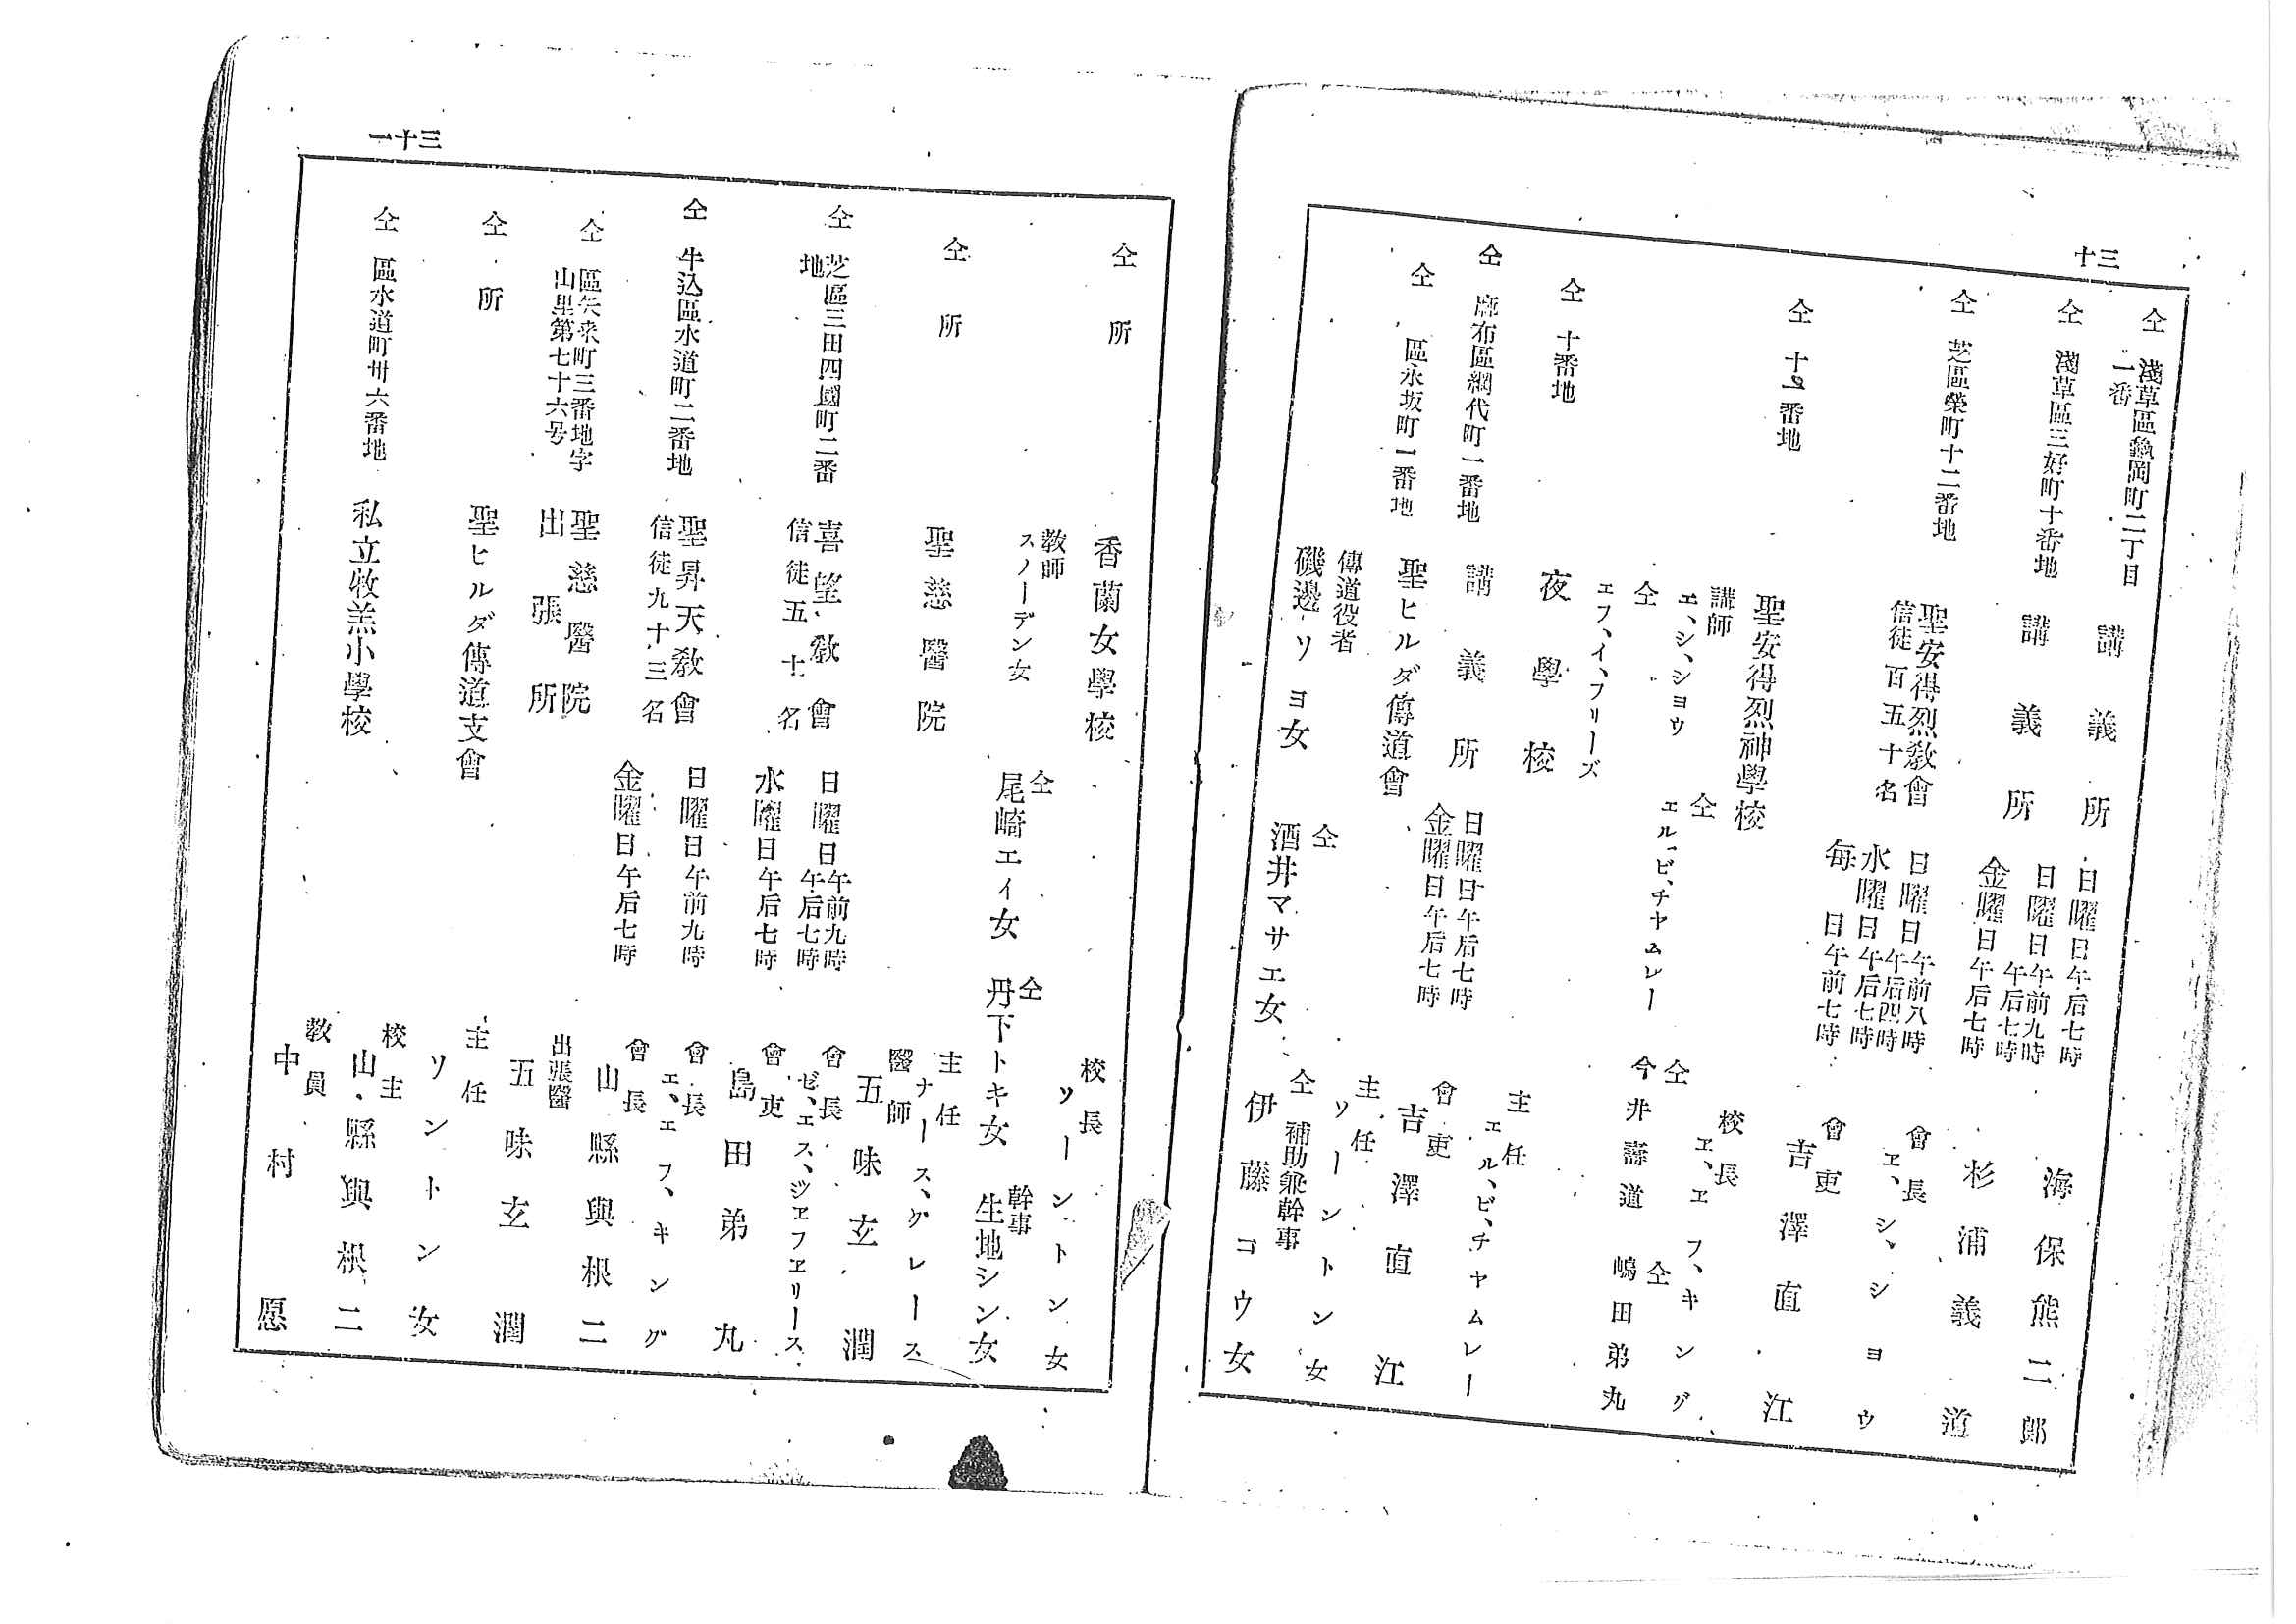 三十
仝 淺草區龜岡町二丁目
二番
講義所
日曜日午后七時
海保熊二郎
仝 淺草區三好町十番地
講義所
日曜日午前九時
午后七時
金曜日午后七時
杉浦義道
仝 芝區榮町十二番地
聖安得烈教會
信徒百五十名
日曜日午前八時
午后四時
水曜日午后七時
毎日午前七時
會長
エ、シ、シヨウ
會吏
吉澤直江
仝 十番地
聖安得烈神學校
校長
エ、エフ、キング
講師
エ、シ、シヨウ
仝
エル、ビ、チヤムレー
仝
今井壽道
仝
エフ、イ、フリーズ
仝
嶋田弟丸
仝 十番地
夜學校
主任
エル、ビ、チヤムレー
仝 麻布區網代町一番地
講義所
日曜日午后七時
金曜日午后七時
會吏
吉澤直江
仝 區永坂町一番地
聖ヒルダ傳道會
主任
ソーントン女
傳道役者
磯邊ソヨ女
仝
酒井マサエ女
仝 補助兼幹事
伊藤コウ女
三十一
仝所
香蘭女學校
校長
ソーントン女
教師
スノーデン女
仝
尾崎エイ女
仝
丹下トキ女
幹事
生地シン女
仝所
聖慈醫院
主任
ナース、グレース
醫師
五味玄潤
仝 芝區三田四國町二番
地
喜望教會
信徒五十名
日曜日午前九時
午后七時
水曜日午后七時
會長
ゼ、エス、ジエフエリース
會吏
島田弟丸
仝 牛込區水道町二番地
聖昇天教會
信徒九十三名
日曜日午前九時
金曜日午后七時
會長
エ、エフ、キング
會長
山縣與根二
仝 區矢來町三番地字
山里第七十六号
聖慈醫院
出張所
出張醫
五味玄潤
仝所
聖ヒルダ傳道支會
主任
ソントン女
仝 區水道町卅六番地
私立牧羔小學校
校主
山縣與根二
教員
中村愿